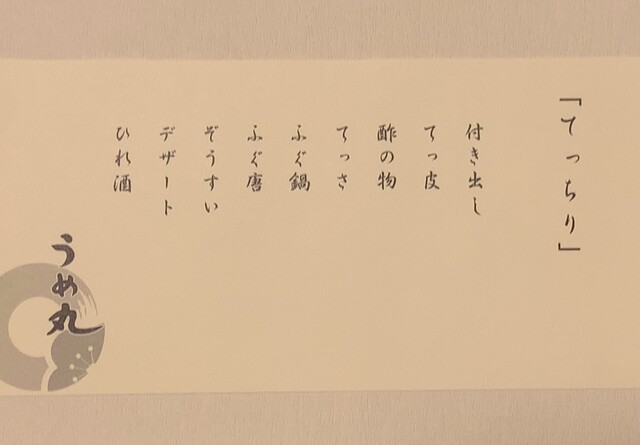 「てっちり」
付き出し
てっ皮
酢の物
てっさ
ふぐ鍋
ふぐ唐
ぞうすい
デザート
ひれ酒
うめ丸